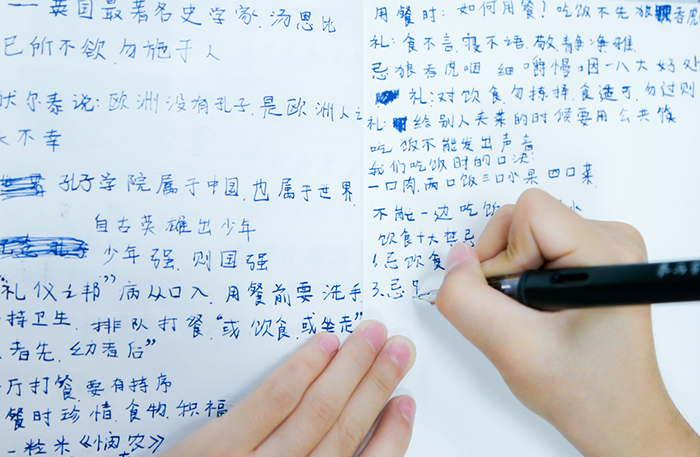 一英国最著名史学家.汤恩比
己所不欲,勿施于人
伏尔泰说:欧洲没有孔子,是欧洲人之
大不幸
孔子学院属于中国,也属于世界
自古英雄出少年
少年强,则国强
"礼仪之邦"病从口入,用餐前要洗手
持卫生,排队打餐,"或饮食,或坐走"
者先,幼者后"
厅打餐,要有持序
餐时珍惜,食物,积福
一粒米《悯农》
用餐时:如何用餐!吃饭不先狼吞虎
礼:食不言,寝不语,敬,静净雅
忌狼吞虎咽 细嚼慢咽一八大好处
礼:对饮食,勿拣择,食适可,勿过则
礼:给别人夹菜的时候要用公共筷
吃饭不能发出声音
我们吃饭时的口决:
一口肉,两口饭三口水果四口菜
不能一边吃饭
饮食十大禁忌
1.忌饮食
3.忌